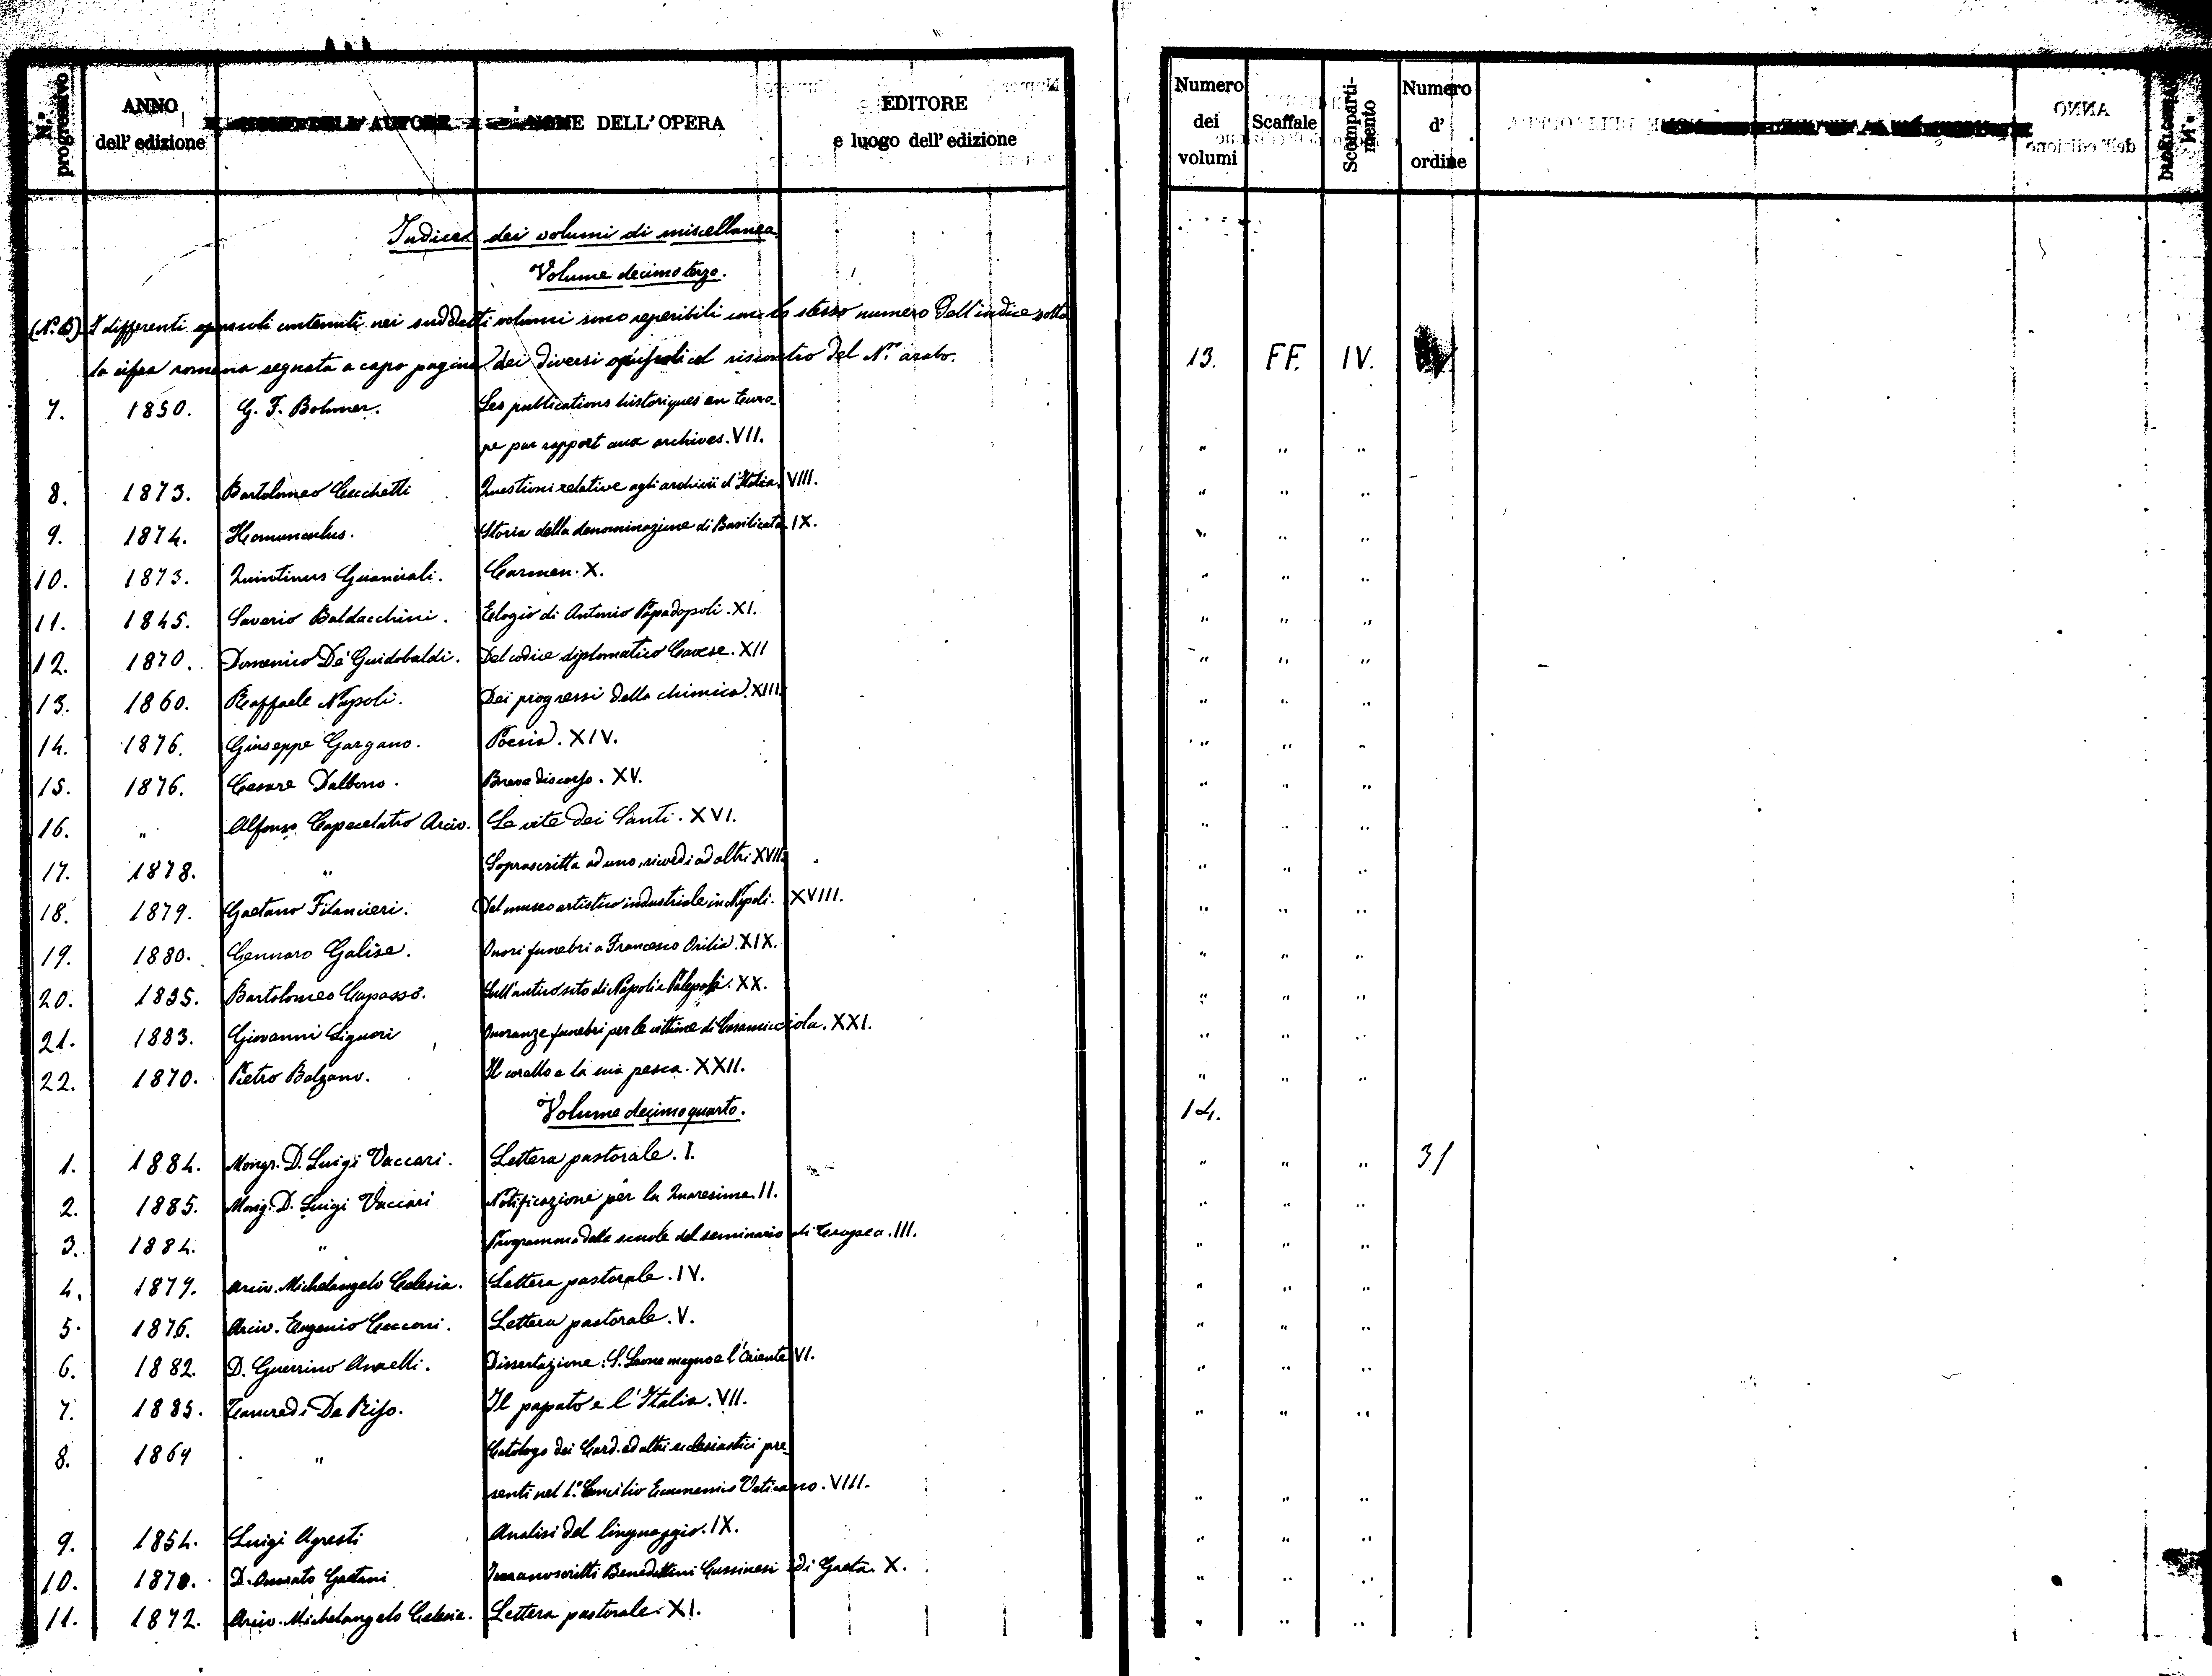 N.° progressivo ANNO dell' edizione NOME DELL' AUTORE NOME DELL' OPERA EDITORE e luogo dell' edizione Numero dei volumi Scaffale Scomparti-mento Numero d' ordine
Indice dei volumi di miscellanea
Volume decimoterzo.
(N.B) I differenti opuscoli contenuti nei suddetti volumi sono reperibili con lo stesso numero dell'indice sotto
la cifra romana segnata a capo pagina dei diversi opuscoli al riscontro del N.° arabo. 13. FF. IV.
7. 1850. G. F. Bohmer. Les publications historiques en Euro-
pe par rapport aux archives. VII. " " "
8. 1873. Bartolomeo Cecchetti Questioni relative agli archivii d'Italia. VIII. " " "
9. 1874. Homunculus. Storia della denominazione di Basilicata. IX. " " "
10. 1873. Quintinus Guanciali. Carmen. X. " " "
11. 1845. Saverio Baldacchini. Elogio di Antonio Papadopoli. XI. " " "
12. 1870. Domenico De' Guidobaldi. Del codice diplomatico Cavese. XII " " "
13. 1860. Raffaele Napoli. Dei progressi della chimica. XIII. " " "
14. 1876. Giuseppe Gargano. Poesia. XIV. " " "
15. 1876. Cesare Dalbono. Breve discorso. XV. " " "
16. " Alfonso Capecelatro Arciv. Le vite dei Santi. XVI. " " "
17. 1878. " Soprascritta ad uno, ricevedi ad altri XVII. " " "
18. 1879. Gaetano Filancieri. Del museo artistico industriale in Napoli. XVIII. " " "
19. 1880. Gennaro Galise. Onori funebri a Francesco Orilia. XIX. " " "
20. 1835. Bartolomeo Capasso. Sull'antico sito di Napoli e Palepoli. XX. " " "
21. 1883. Giovanni Liguori Onoranze funebri per le vittime di Casamicciola. XXI. " " "
22. 1870. Pietro Balzano. Il corallo e la sua pesca. XXII. " " "
Volume decimoquarto. 14.
1. 1884. Mongr. D. Luigi Vaccari. Lettera pastorale. I. " " " 31
2. 1885. Mong. D. Luigi Vaccari Notificazione per la Quaresima. II. " " "
3. 1884. " Programma delle scuole del seminario di Tropea. III. " " "
4. 1879. Arciv. Michelangelo Celesia. Lettera pastorale. IV. " " "
5. 1876. Arciv. Eugenio Cecconi. Lettera pastorale. V. " " "
6. 1882. D. Guerrino Amelli. Dissertazione: S. Leone magno e l'Oriente VI. " " "
7. 1885. Tancredi De Riso. Il papato e l'Italia. VII. " " "
8. 1869 " Catalogo dei Card. ed altri ecclesiastici pre-
senti nel 1.° Concilio Ecumenico Vaticano. VIII. " " "
9. 1854. Luigi Agresti Analisi del linguaggio. IX. " " "
10. 1870. D. Onorato Gaetani I manoscritti Benedettini Cassinesi di Gaeta. X. " " "
11. 1872. Arciv. Michelangelo Celesia. Lettera pastorale. XI. " " "